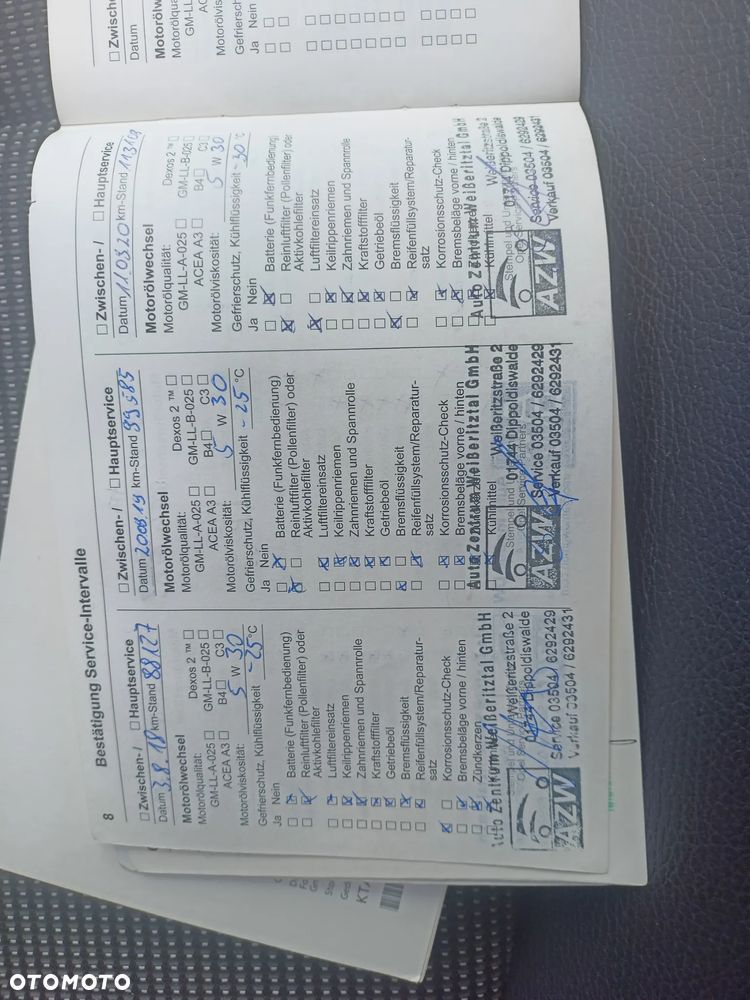 8
Bestätigung Service-Intervalle
☐ Zwischen- / ☐ Hauptservice
Datum 3.8.18 km-Stand 88127
Motorölwechsel
Motorölqualität: Dexos 2 ™ ☐
GM-LL-A-025 ☐ GM-LL-B-025 ☐
ACEA A3 ☐ B4 ☐ C3 ☐
Motorölviskosität: 5 W 30
Gefrierschutz, Kühlflüssigkeit -25 °C
Ja Nein
Batterie (Funkfernbedienung)
Reinluftfilter (Pollenfilter) oder
Aktivkohlefilter
Luftfiltereinsatz
Keilrippenriemen
Zahnriemen und Spannrolle
Kraftstofffilter
Getriebeöl
Bremsflüssigkeit
Reifenfüllsystem/Reparatur-
satz
Korrosionsschutz-Check
Bremsbeläge vorne / hinten
Zündkerzen
Auto Zentrum Weißeritztal GmbH
Weißeritzstraße 2
01744 Dippoldiswalde
AZW Service 03504 / 6292429
Verkauf 03504 / 6292431
☐ Zwischen- / ☐ Hauptservice
Datum 20.08.19 km-Stand 99585
Motorölwechsel
Motorölqualität: Dexos 2 ™ ☐
GM-LL-A-025 ☐ GM-LL-B-025 ☐
ACEA A3 ☐ B4 ☐ C3 ☐
Motorölviskosität: 5 W 30
Gefrierschutz, Kühlflüssigkeit -25 °C
Ja Nein
Batterie (Funkfernbedienung)
Reinluftfilter (Pollenfilter) oder
Aktivkohlefilter
Luftfiltereinsatz
Keilrippenriemen
Zahnriemen und Spannrolle
Kraftstofffilter
Getriebeöl
Bremsflüssigkeit
Reifenfüllsystem/Reparatur-
satz
Korrosionsschutz-Check
Bremsbeläge vorne / hinten
Auto Zentrum Weißeritztal GmbH
Kühlmittel Weißeritzstraße 2
Stempel und 01744 Dippoldiswalde
AZW Service 03504 / 6292429
Verkauf 03504 / 6292431
☐ Zwischen- / ☐ Hauptservice
Datum 11.03.20 km-Stand
Motorölwechsel
Motorölqualität: Dexos 2 ™ ☐
GM-LL-A-025 ☐ GM-LL-B-025 ☐
ACEA A3 ☐ B4 ☐ C3 ☐
Motorölviskosität: 5 W 30
Gefrierschutz, Kühlflüssigkeit -30 °C
Ja Nein
Batterie (Funkfernbedienung)
Reinluftfilter (Pollenfilter) oder
Aktivkohlefilter
Luftfiltereinsatz
Keilrippenriemen
Zahnriemen und Spannrolle
Kraftstofffilter
Getriebeöl
Bremsflüssigkeit
Reifenfüllsystem/Reparatur-
satz
Korrosionsschutz-Check
Bremsbeläge vorne / hinten
Auto Zentrum Weißeritztal GmbH
Kühlmittel Weißeritzstraße 2
Stempel und 01744 Dippoldiswalde
AZW Service 03504 / 6292429
Verkauf 03504 / 6292431
☐ Zwischen-
Datum
Motorölqua
GM-LL-
Motorölvis
Gefriersch
Ja Nein
OTOMOTO